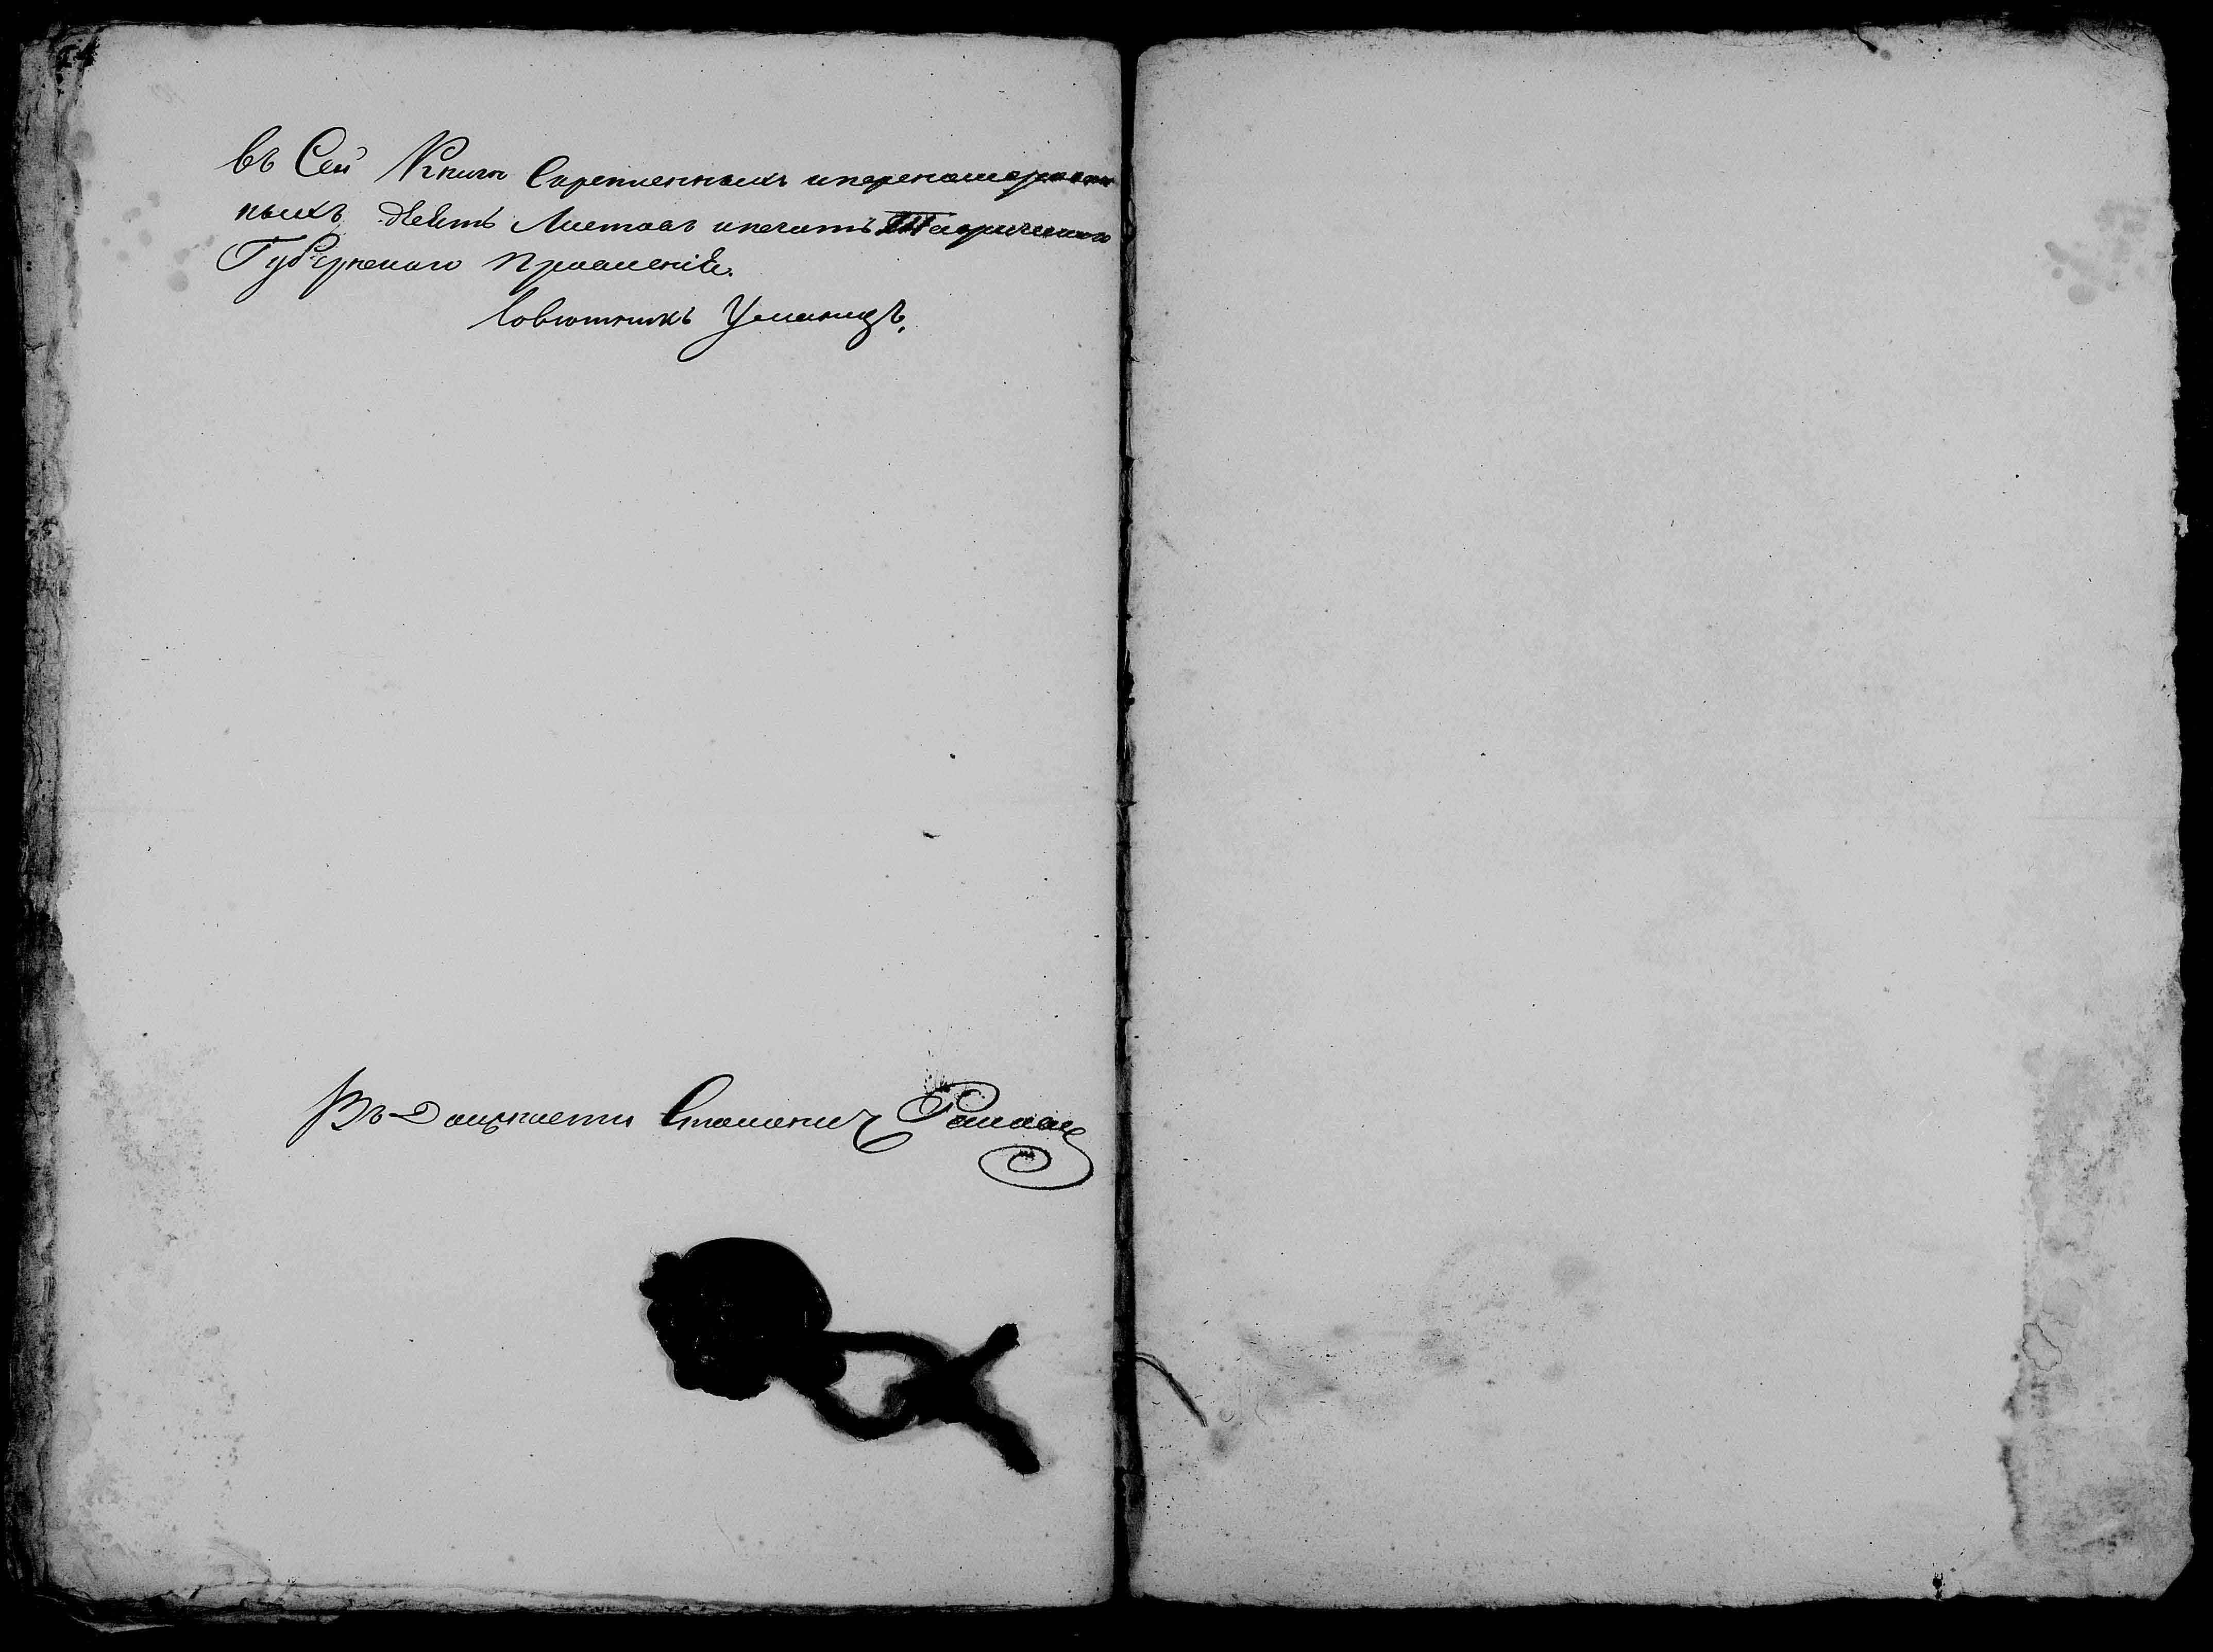 въ Сей Книги Скрепленныхъ и перенамерован
ныхъ девять Листовъ и печать Таврическаго
Губернскаго Правленія.
Совютникъ Уманецъ
Въ Должности Столоначу